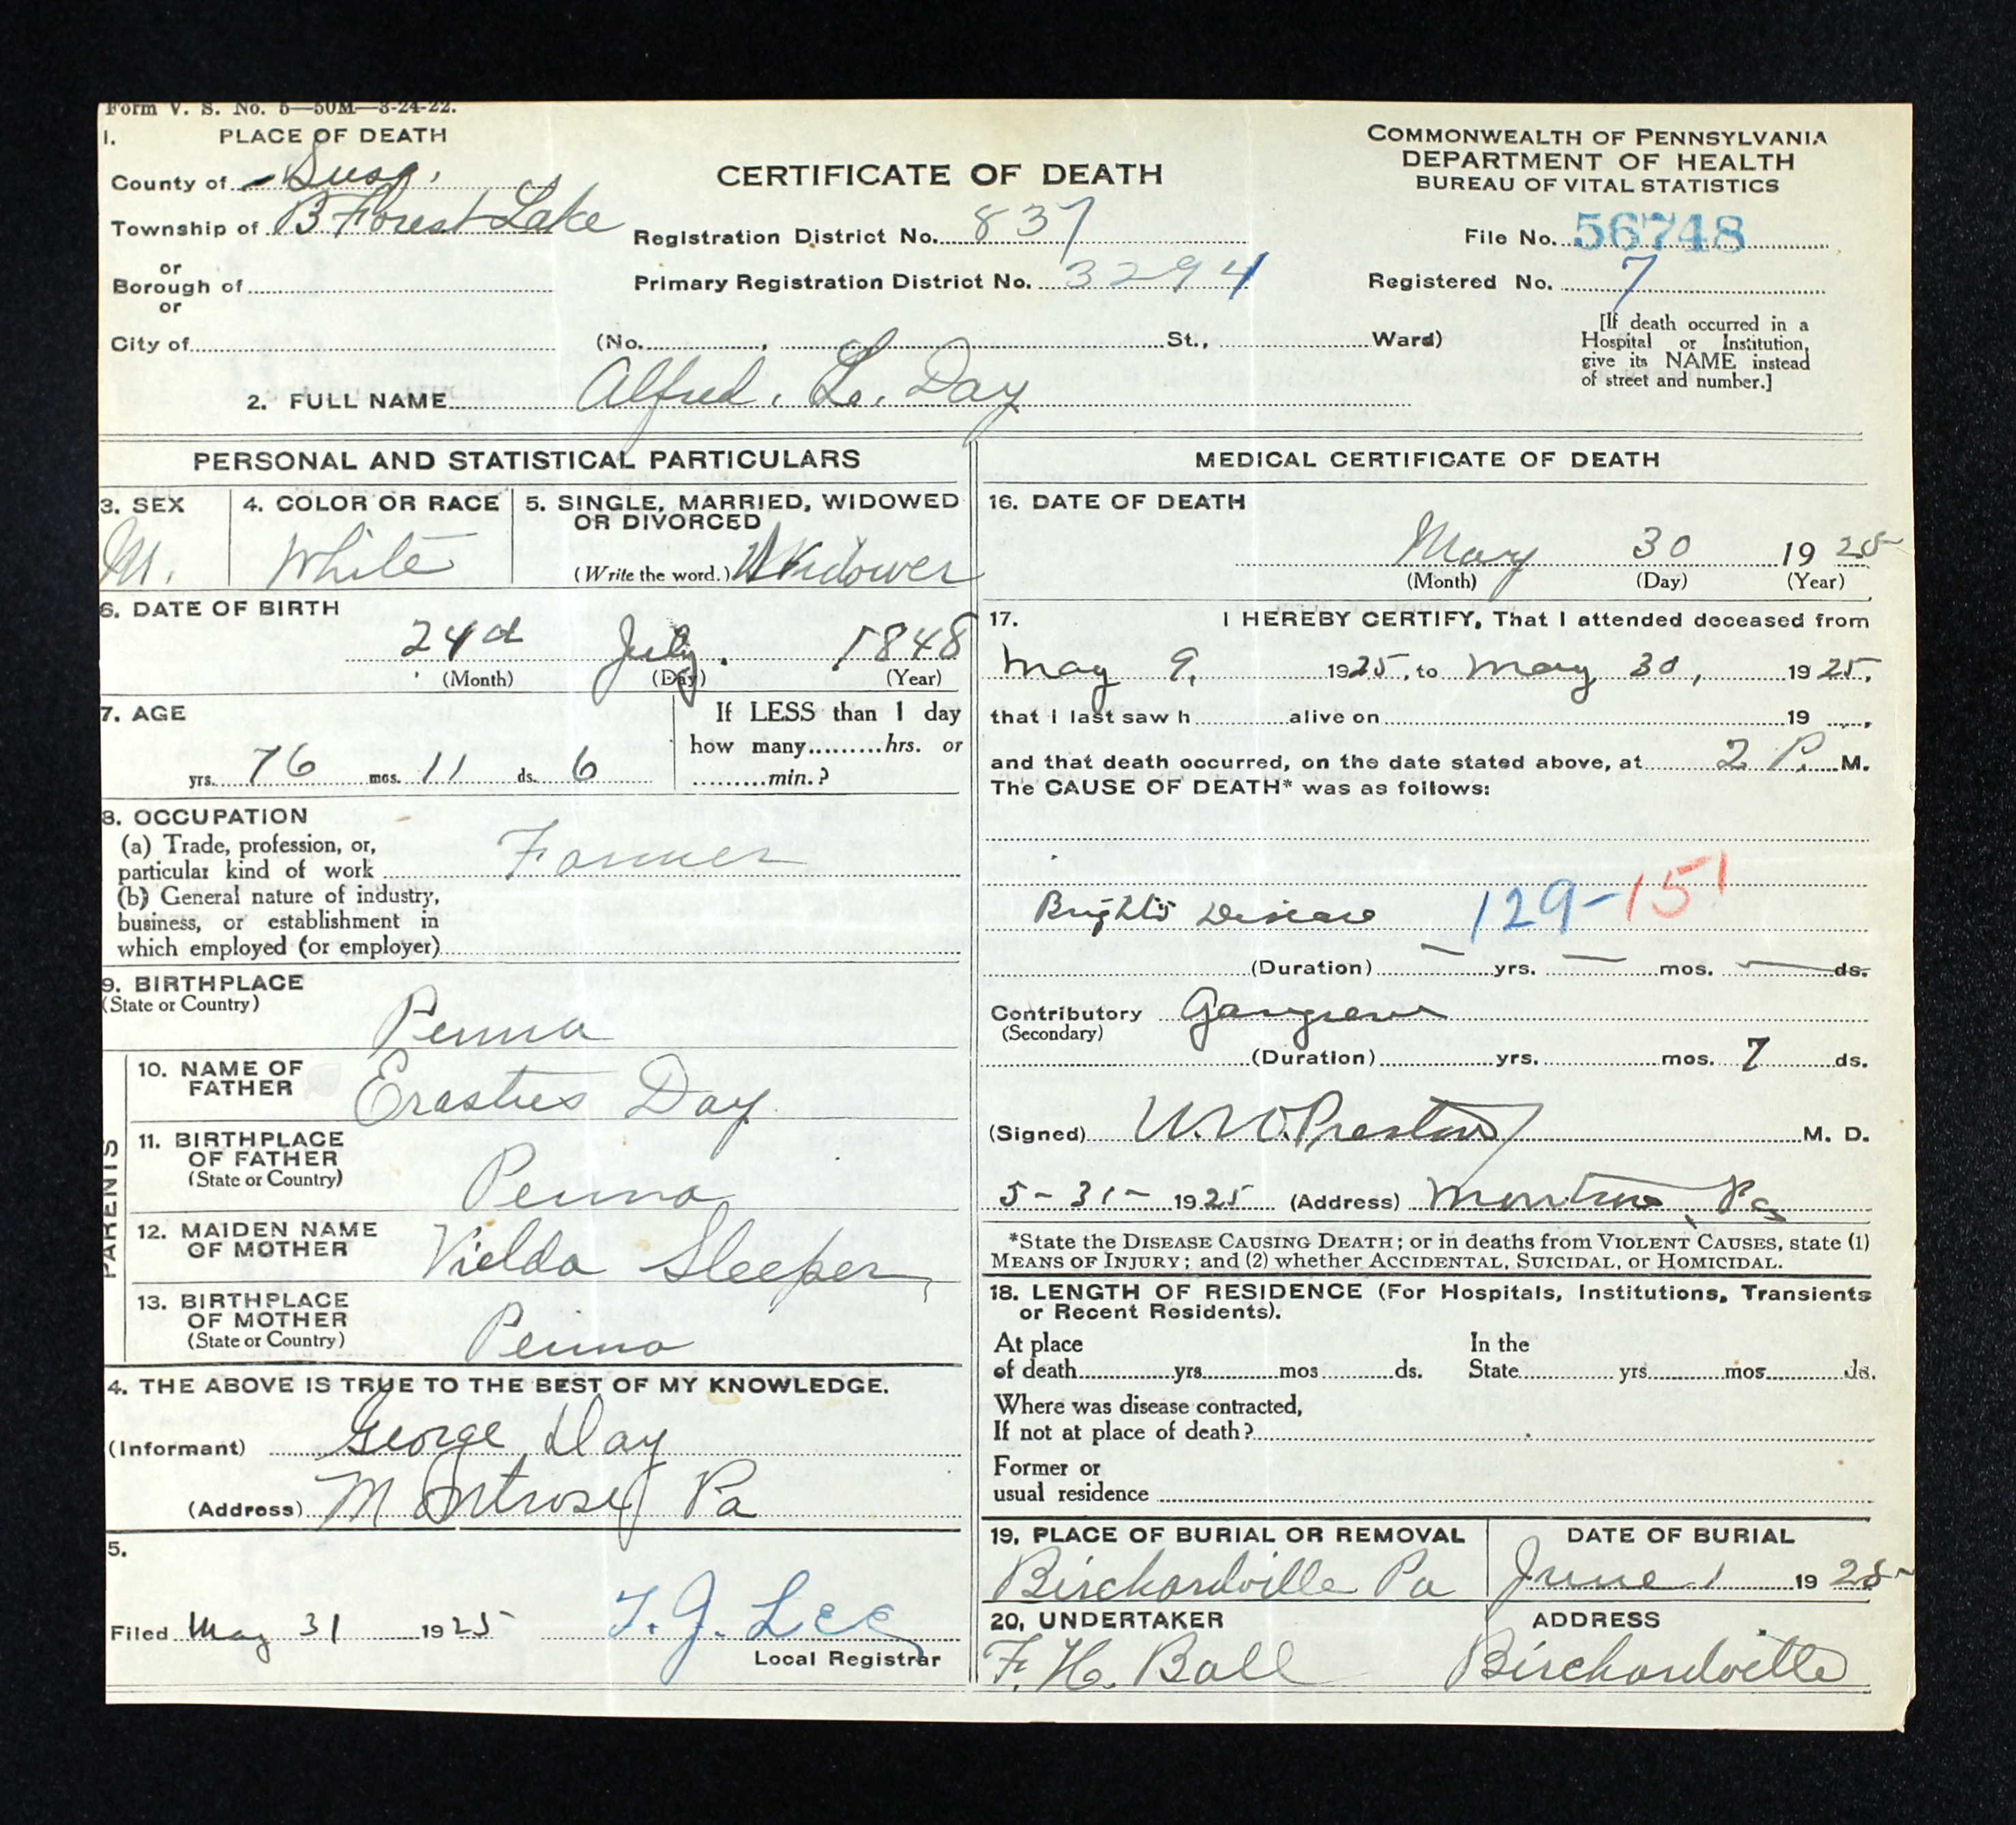 Form V. S. No. 5—50M—3-24-22.
1. PLACE OF DEATH
County of Susq.
Township of B Forest Lake
or
Borough of
or
City of
CERTIFICATE OF DEATH
Registration District No. 837
Primary Registration District No. 3294
(No. , St., Ward)
COMMONWEALTH OF PENNSYLVANIA
DEPARTMENT OF HEALTH
BUREAU OF VITAL STATISTICS
File No. 56748
Registered No. 7
[If death occurred in a
Hospital or Institution,
give its NAME instead
of street and number.]
2. FULL NAME Alfred. L. Day
PERSONAL AND STATISTICAL PARTICULARS
3. SEX
M.
4. COLOR OR RACE
White
5. SINGLE, MARRIED, WIDOWED
OR DIVORCED
(Write the word.) Widower
6. DATE OF BIRTH
24d July. 1848
(Month) (Day) (Year)
7. AGE
yrs. 76 mos. 11 ds. 6
If LESS than 1 day
how many.........hrs. or
.........min.?
8. OCCUPATION
(a) Trade, profession, or,
particular kind of work Farmer
(b) General nature of industry,
business, or establishment in
which employed (or employer)
9. BIRTHPLACE
(State or Country)
Penna
PARENTS
10. NAME OF
FATHER
Erastus Day
11. BIRTHPLACE
OF FATHER
(State or Country)
Penna
12. MAIDEN NAME
OF MOTHER
Vielda Sleeper
13. BIRTHPLACE
OF MOTHER
(State or Country)
Penna
4. THE ABOVE IS TRUE TO THE BEST OF MY KNOWLEDGE.
(Informant) George Day
(Address) Montrose Pa
5.
Filed May 31 1925 T. J. Lee
Local Registrar
MEDICAL CERTIFICATE OF DEATH
16. DATE OF DEATH
May 30 1925
(Month) (Day) (Year)
17. I HEREBY CERTIFY, That I attended deceased from
May 9, 1925, to May 30, 1925,
that I last saw h alive on 19 ,
and that death occurred, on the date stated above, at 2 P. M.
The CAUSE OF DEATH* was as follows:
Bright's Disease 129-151
(Duration) — yrs. — mos. — ds.
Contributory Gangrene
(Secondary)
(Duration) yrs. mos. 7 ds.
(Signed) Preston M. D.
5-31-1925 (Address) Montrose, Pa
*State the DISEASE CAUSING DEATH; or in deaths from VIOLENT CAUSES, state (1)
MEANS OF INJURY; and (2) whether ACCIDENTAL, SUICIDAL, or HOMICIDAL.
18. LENGTH OF RESIDENCE (For Hospitals, Institutions, Transients
or Recent Residents).
At place
of death yrs. mos ds.
In the
State yrs. mos. ds.
Where was disease contracted,
If not at place of death?
Former or
usual residence
19. PLACE OF BURIAL OR REMOVAL
Birchardville Pa
DATE OF BURIAL
June 1 1925
20. UNDERTAKER
F. H. Ball
ADDRESS
Birchardville